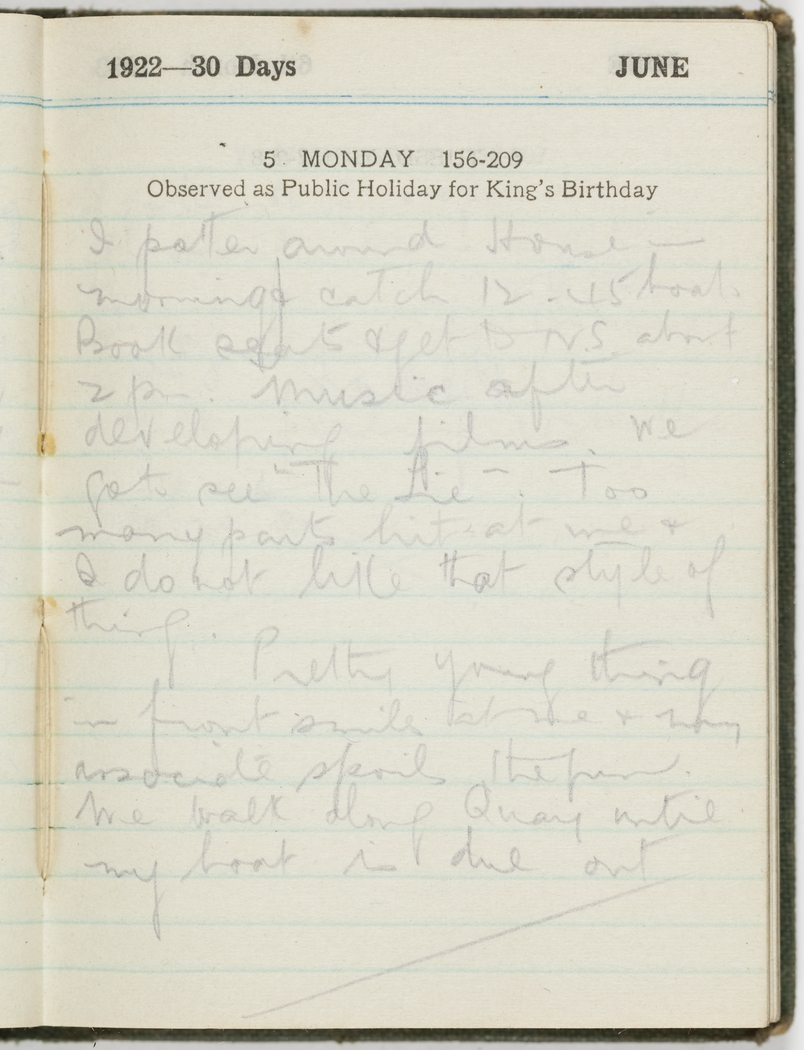 1922—30 Days JUNE
5 MONDAY 156-209
Observed as Public Holiday for King's Birthday
I potter around House in
morning & catch 12.45 boat.
Book seats & get to NS about
2 pm. Music after
developing films. We
go to see "The Lie". Too
many parts hit at me &
I do not like that style of
thing.
Pretty young thing
in front smiles at me & my
associate spoils the fun.
We walk along Quay until
my boat is due out